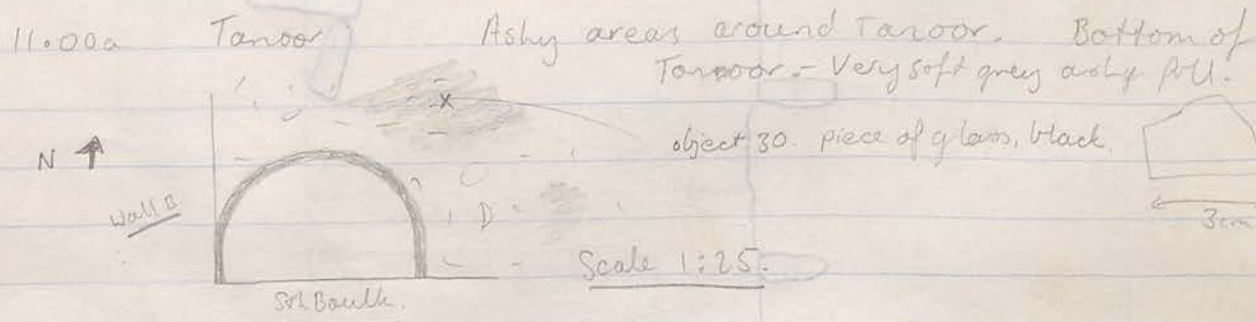 11.00a Tanoor Ashy areas around Tanoor. Bottom of
Tanoor - Very soft grey ashy fill.
x
N
object 30. piece of glass, black.
Wall B
3cm
Scale 1:25.
Sth Baulk.